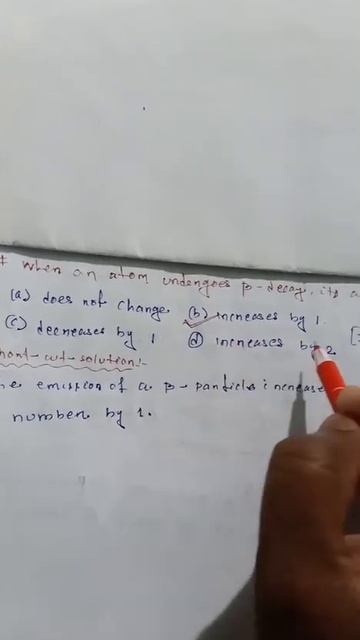 when an atom undergoes β-decay, its a
(a) does not change (b) increases by 1.
(c) decreases by 1 (d) increases by 2
cut-solution:-
emission of a β-particle increases
number by 1.